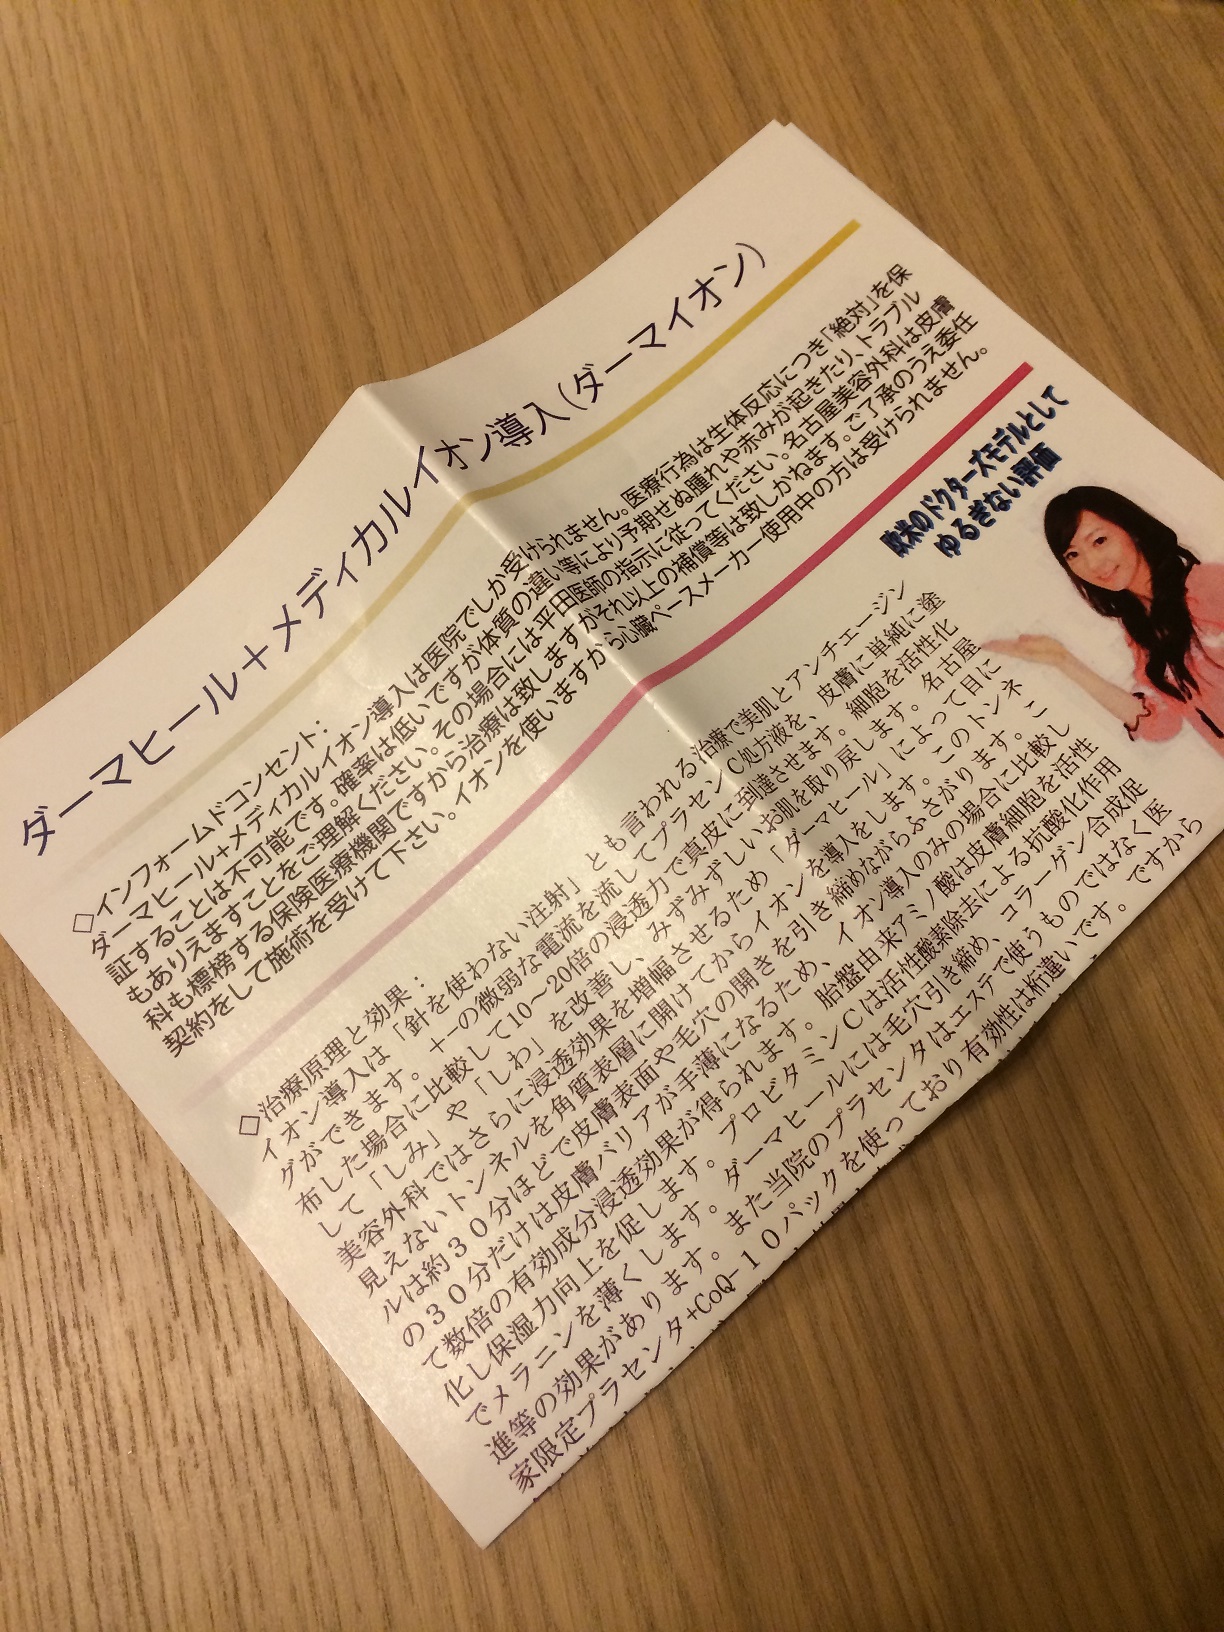 ダーマヒール＋メディカルイオン導入（ダーマイオン）
◇インフォームドコンセント：
ダーマヒール+メディカルイオン導入は医院でしか受けられません。医療行為は生体反応につき「絶対」を保
証することは不可能です。確率は低いですが体質の違い等により予期せぬ腫れや赤みが起きたり、トラブル
もありえますことをご理解ください。その場合には平田医師の指示に従ってください。名古屋美容外科は皮膚
科も標榜する保険医療機関ですから治療は致しますがそれ以上の補償等は致しかねます。ご了承のうえ委任
契約をして施術を受けて下さい。イオンを使いますから心臓ペースメーカー使用中の方は受けられません。
欧米のドクターズモデルとして
ゆるぎない評価
◇治療原理と効果：
イオン導入は「針を使わない注射」とも言われる治療で美肌とアンチェージン
グができます。＋－の微弱な電流を流してプラセンＣ処方液を、皮膚に単純に塗
布した場合に比較して10～20倍の浸透力で真皮に到達させます。細胞を活性化
して「しみ」や「しわ」を改善し、みずみずしいお肌を取り戻します。名古屋
美容外科ではさらに浸透効果を増幅させるため「ダーマヒール」によって目に
見えないトンネルを角質表層に開けてからイオンを導入をします。このトンネ
ルは約３０分ほどで皮膚表面や毛穴の開きを引き締めながらふさがります。こ
の３０分だけは皮膚バリアが手薄になるため、イオン導入のみの場合に比較し
て数倍の有効成分浸透効果が得られます。胎盤由来アミノ酸は皮膚細胞を活性
化し保湿力向上を促します。プロビタミンＣは活性酸素除去による抗酸化作用
でメラニンを薄くします。ダーマヒールには毛穴引き締め、コラーゲン合成促
進等の効果があります。また当院のプラセンタはエステで使うものではなく医
家限定プラセンタ+CoQ-１０パックを使っており有効性は桁違いです。ですから